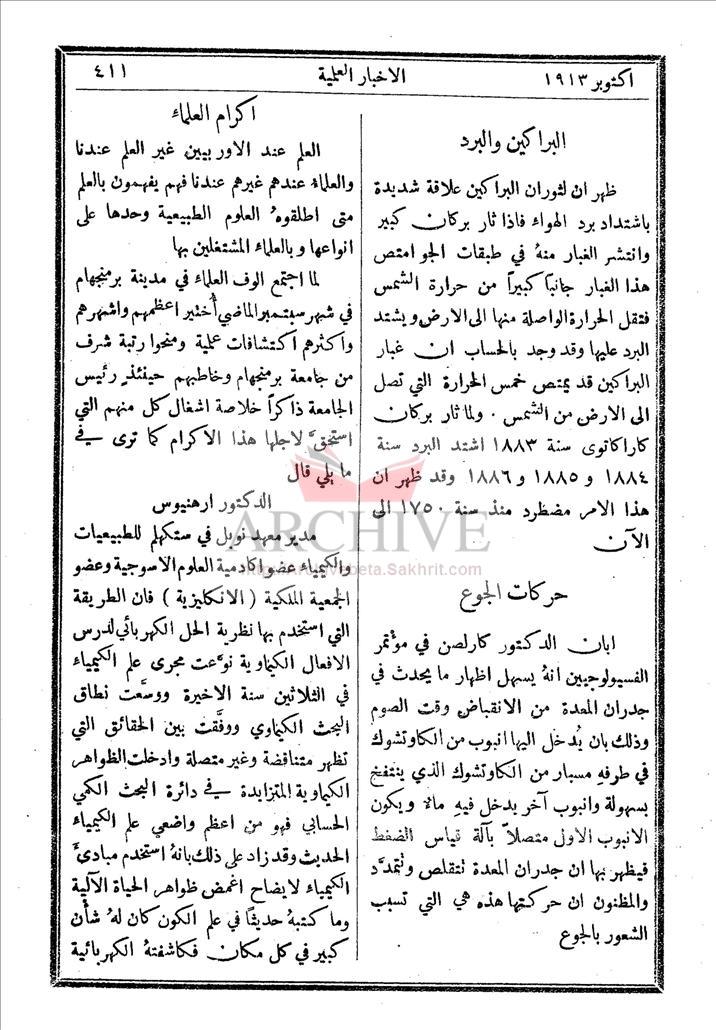 اكتوبر ١٩١٣
الاخبار العلمية
٤١١
البراكين والبرد
ظهر ان لثوران البراكين علاقة شديدة
باشتداد برد الهواء فاذا ثار بركان كبير
وانتشر الغبار منهُ في طبقات الجو امتص
هذا الغبار جانباً كبيراً من حرارة الشمس
فتقل الحرارة الواصلة منها الى الارض ويشتد
البرد عليها وقد وجد بالحساب ان غبار
البراكين قد يمتص خمس الحرارة التي تصل
الى الارض من الشمس . ولما ثار بركان
كاراكاتوى سنة ١٨٨٣ اشتد البرد سنة
١٨٨٤ و ١٨٨٥ و ١٨٨٦ وقد ظهر ان
هذا الامر مضطرد منذ سنة ١٧٥٠ الى
الآن
حركات الجوع
ابان الدكتور كارلصن في مؤتمر
الفسيولوجيين انهُ يسهل اظهار ما يحدث في
جدران المعدة من الانقباض وقت الصوم
وذلك بان يُدخل اليها انبوب من الكاوتشوك
في طرفهِ مسبار من الكاوتشوك الذي ينتفخ
بسهولة وانبوب آخر يدخل فيهِ مالا ويكون
الانبوب الاول متصلاً بآلة قياس الضغط
فيظهر بها ان جدران المعدة تتقلص وتتمدَّد
والمظنون ان حركتها هذه هي التي تسبب
الشعور بالجوع
اكرام العلماء
العلم عند الاوربيين غير العلم عندنا
والعلماء عندهم غيرهم عندنا فهم يفهمون بالعلم
متى اطلقوهُ العلوم الطبيعية وحدها على
انواعها وبالعلماء المشتغلين بها
لما اجتمع الوف العلماء في مدينة برمنجهام
في شهر سبتمبر الماضي أُختير اعظمهم واشهرهم
واكثرهم اكتشافات علمية ومنحوا رتبة شرف
من جامعة برمنجهام وخاطبهم حينئذٍ رئيس
الجامعة ذاكراً خلاصة اشغال كل منهم التي
استحقَّ لاجلها هذا الاكرام كما ترى في
ما يلي قال
الدكتور ارهنيوس
مدير معهد نوبل في ستكهلم للطبيعيات
والكيمياء عضو اكادمية العلوم الاسوجية وعضو
الجمعية الملكية ( الانكليزية ) فان الطريقة
التي استخدم بها نظرية الحل الكهربائي لدرس
الافعال الكيماوية نوَّعت مجرى علم الكيمياء
في الثلاثين سنة الاخيرة ووسَّعت نطاق
البحث الكيماوي ووفَّقت بين الحقائق التي
تظهر متناقضة وغير متصلة وادخلت الظواهر
الكيماوية المتزايدة في دائرة البحث الكمي
الحسابي فهو من اعظم واضعي علم الكيمياء
الحديث وقد زاد على ذلك بانهُ استخدم مبادئَ
الكيمياء لايضاح اغمض ظواهر الحياة الآلية
وما كتبهُ حديثاً في علم الكون كان لهُ شأن
كبير في كل مكان فكاشفتهُ الكهربائية
ARCHIVE